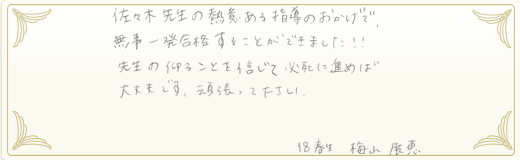 佐々木先生の熱意ある指導のおかげで、
無事一発合格することができました!!
先生の仰ることを信じて必死に進めば
大丈夫です。頑張って下さい。
18春生 梅山 恵